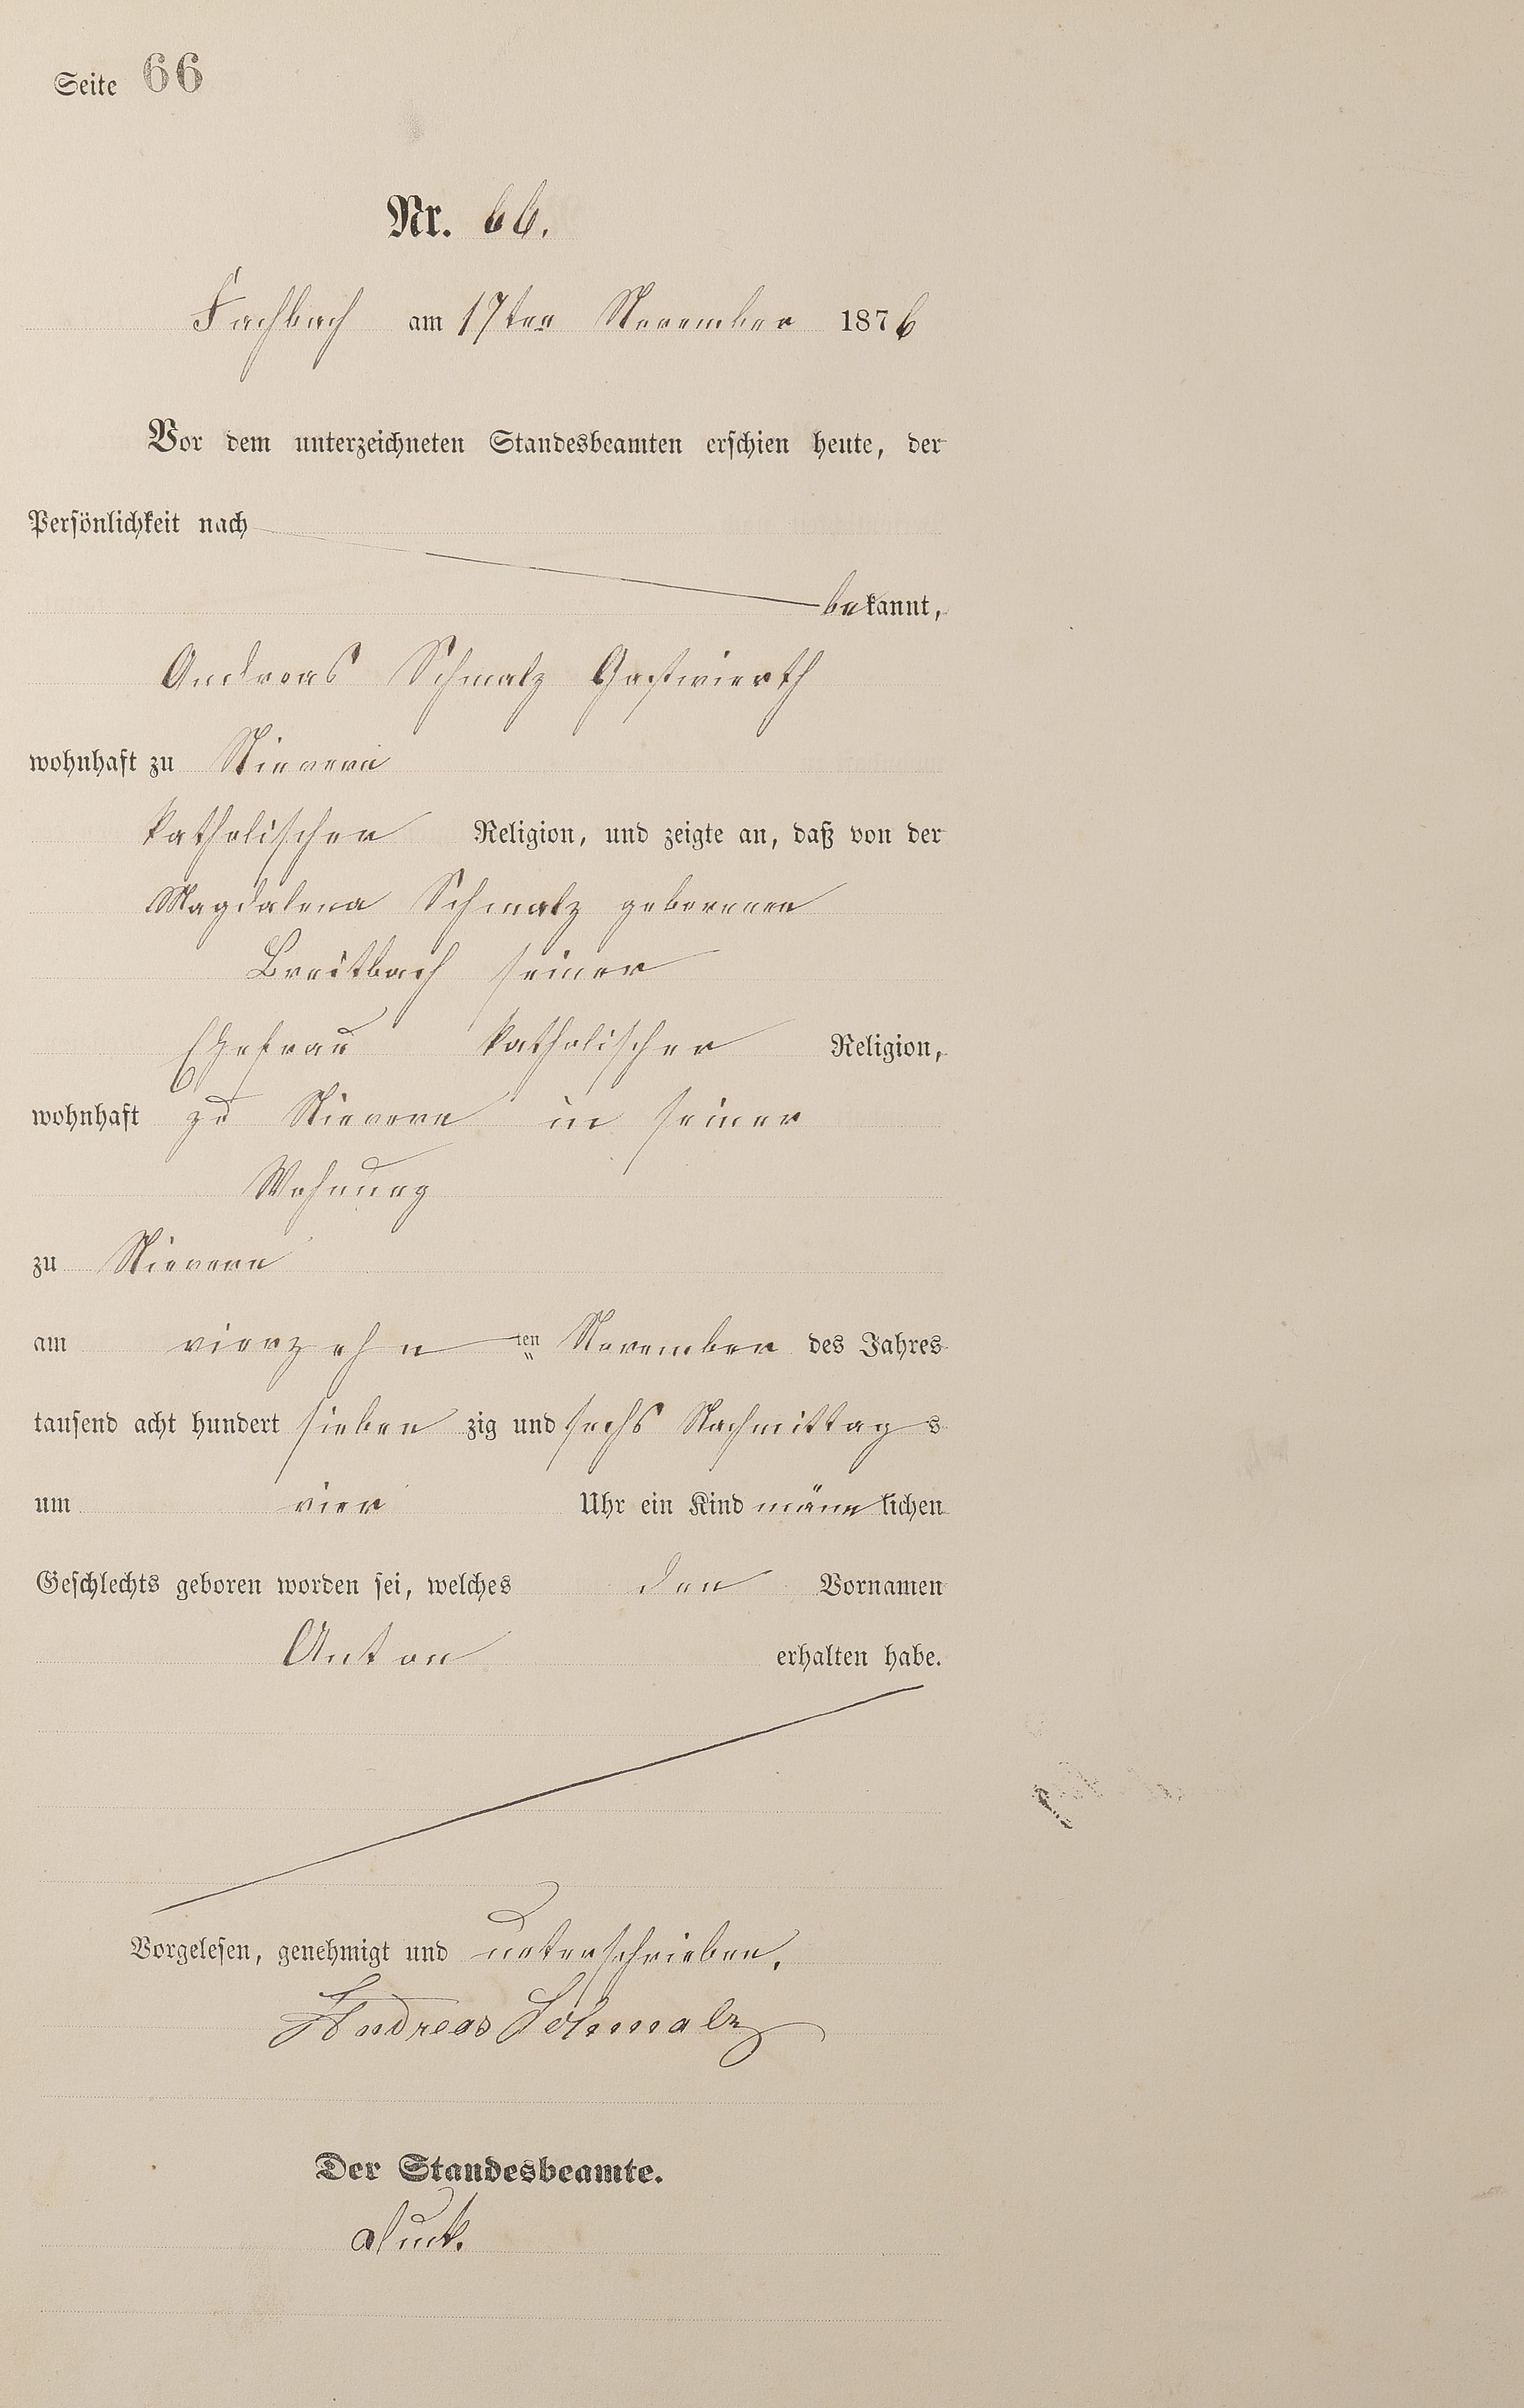 Seite 66
Nr. 66.
Fachbach am 17ten November 1876
Vor dem unterzeichneten Standesbeamten erschien heute, der
Persönlichkeit nach
bekannt,
Andreas Schmalz Gastwierth
wohnhaft zu Nievern
katholischer Religion, und zeigte an, daß von der
Magdalena Schmalz geborenen
Breitbach seiner
Ehefrau katholischer Religion,
wohnhaft zu Nievern in seiner
Wohnung
zu Nievern
am vierzehn ten November des Jahres
tausend acht hundert sieben zig und sechs Nachmittag s
um vier Uhr ein Kind männ lichen
Geschlechts geboren worden sei, welches den Vornamen
Anton erhalten habe.
Vorgelesen, genehmigt und unterschrieben.
Andreas Schmalz
Der Standesbeamte.